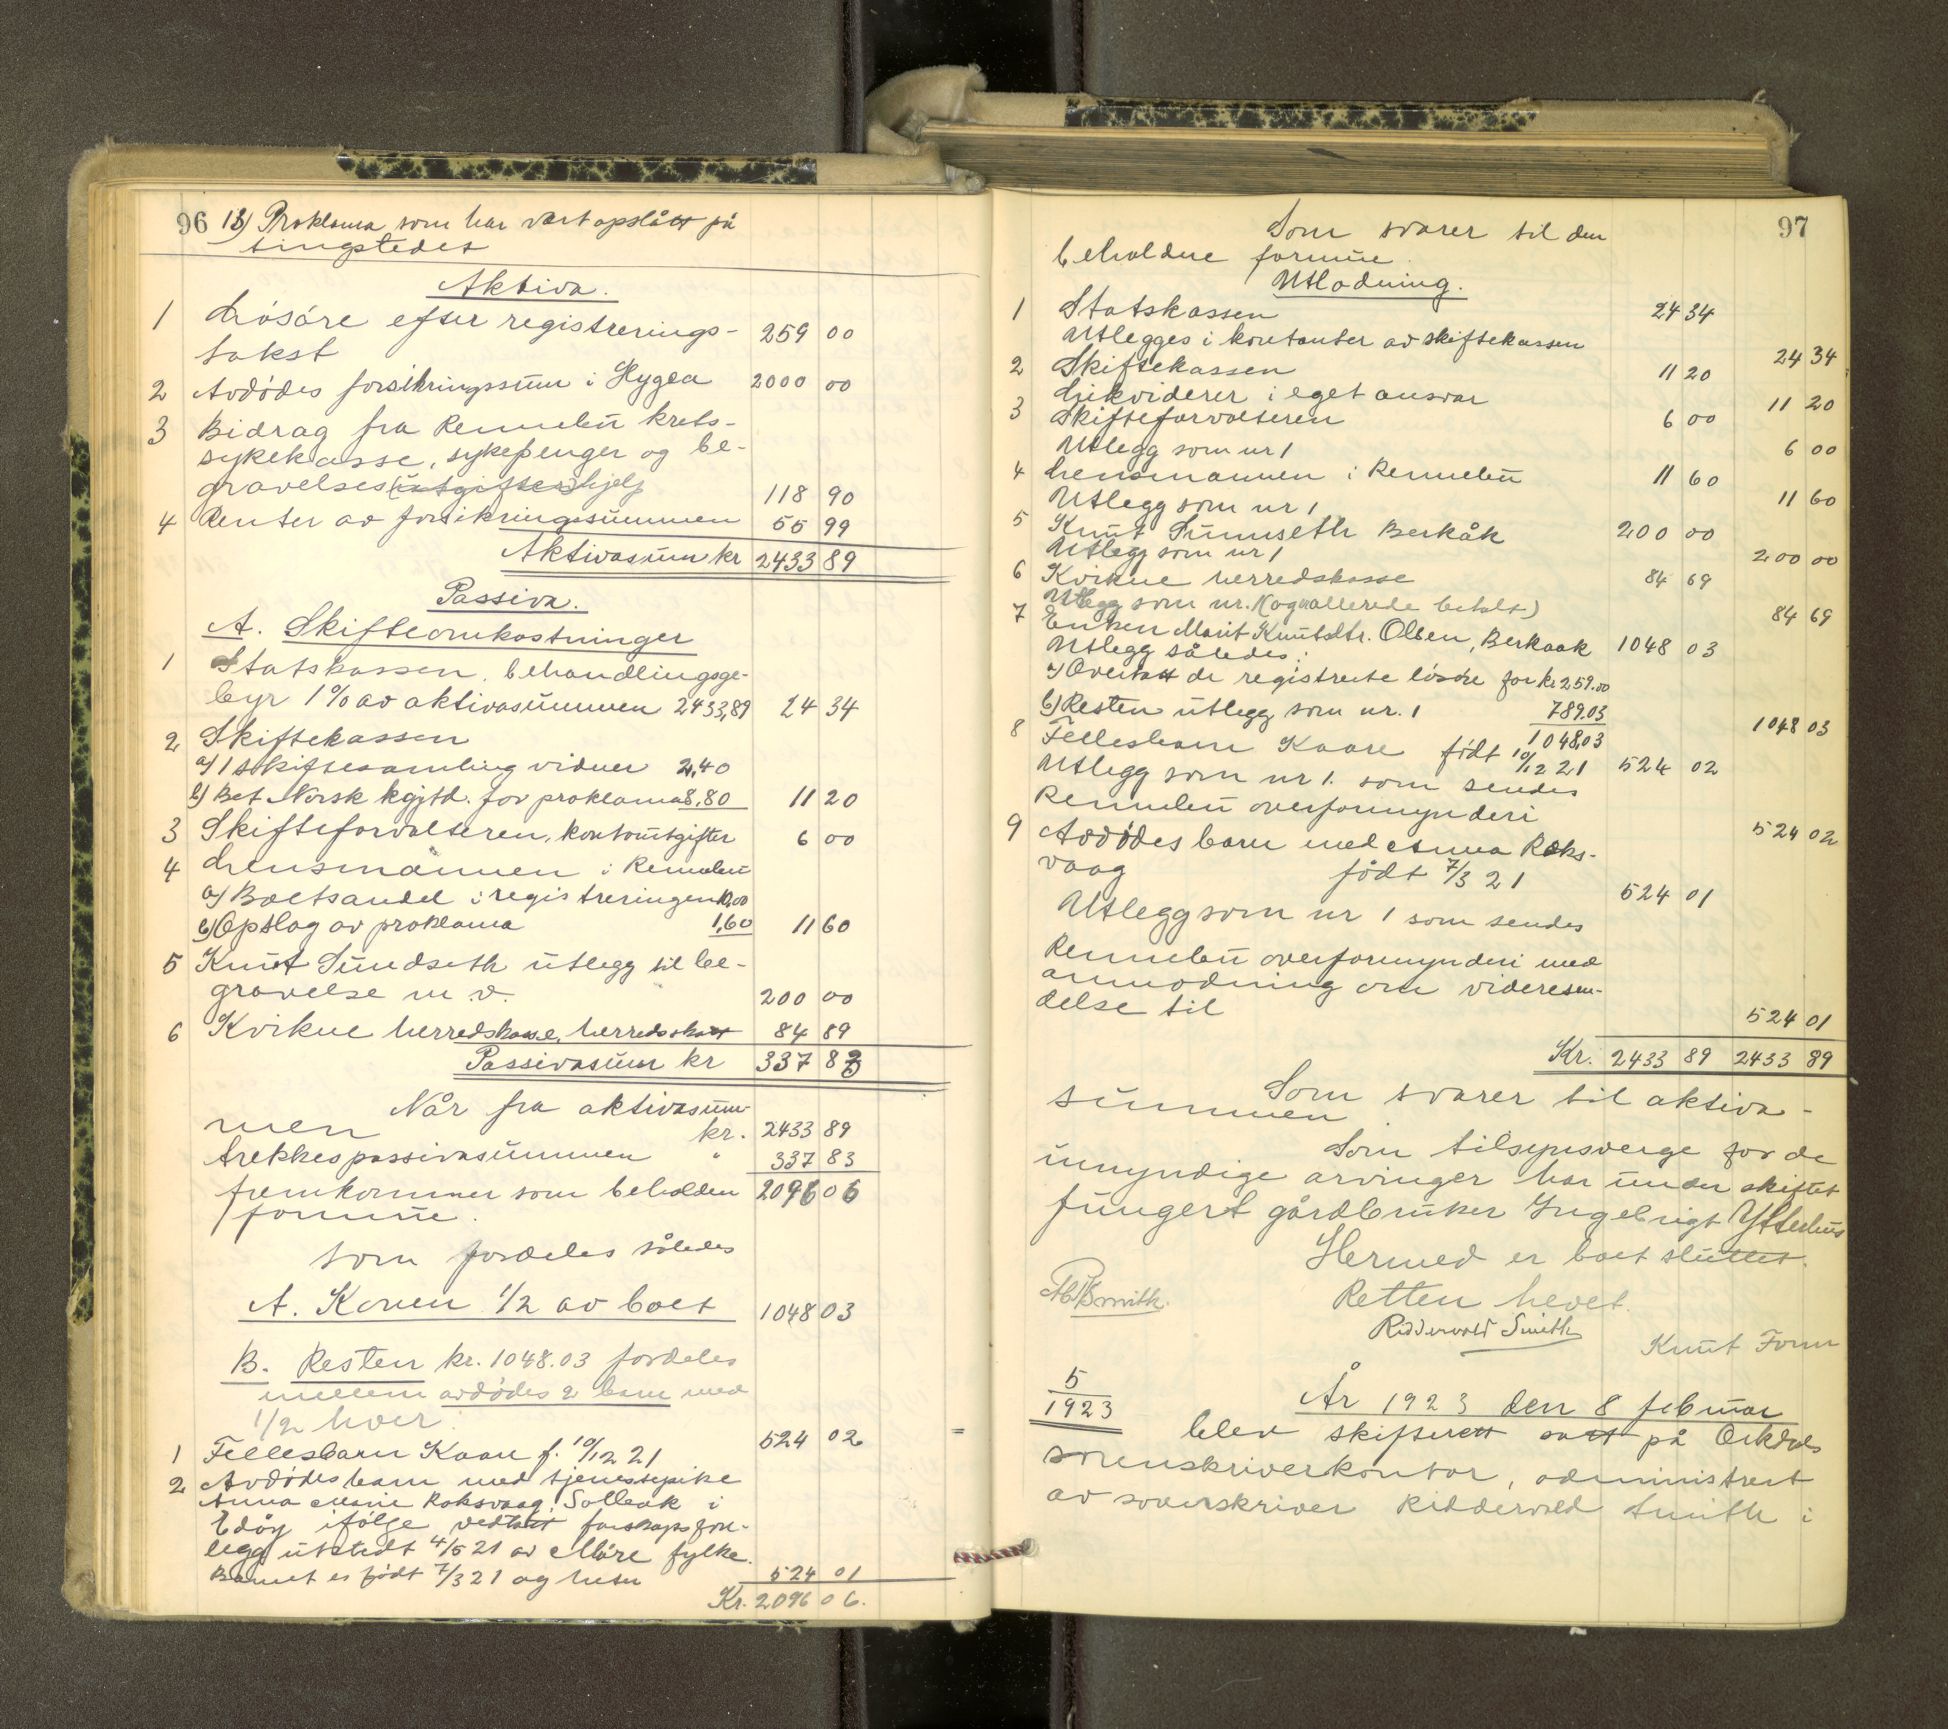 96 13) Proklama som har vært opslått på
tingstedet
Aktiva.
1 Løsøre efter registrerings-
takst 259 00
2 Avdødes forsikringssum i Hygea 2000 00
3 Bidrag fra Rennebu krets-
sykekasse, sykepenger og be-
gravelses(utgifter)hjelp 118 90
4 Renter av forsikringssummen 55 99
Aktivasum kr 2433 89
Passiva.
A. Skifteomkostninger
1 Statskassen, behandlingsge-
byr 1% av aktivasummen 2433,89 24 34
2 Skiftekassen
a) 1 skiftesamling vidner 2,40
b) Bet Norsk kgjtd. for proklama 8,80 11 20
3 Skifteforvalteren, kontorutgifter 6 00
4 Lensmannen i Rennebu
a) Boetsandel i registreringen 10,00
b) Opslag av proklama 1,60 11 60
5 Knut Sundseth utlegg til be-
gravelse m.v. 200 00
6 Kvikne herredskasse, herredsskatt 84 89
Passivasum kr 337 83
Når fra aktivasum-
men kr. 2433 89
trekkes passivasummen " 337 83
fremkommer som beholden 2096 06
formue.
som fordeles således
A. Konen 1/2 av boet 1048 03
B. Resten kr. 1048.03 fordeles
mellem avdødes 2 barn med
1/2 hver.
1 Fellesbarn Kaare f. 10/12 21 524 02
2 Avdødes barn med tjenestepike
Anna Marie Roksvaag, Solbak i
Edøy ifølge vedtatt farskapsfore-
legg utstedt 4/5 21 av Møre fylke.
Barnet er født 7/3 21 og heter 524 01
Kr. 2096 06.
97
Som svarer til den
beholdne formue.
Utlodning.
1 Statskassen 24 34
Utlegges i kontanter av skiftekassen 24 34
2 Skiftekassen 11 20
Likviderer i eget ansvar 11 20
3 Skifteforvalteren 6 00
Utlegg som nr 1 6 00
4 Lensmannen i Rennebu 11 60
Utlegg som nr 1 11 60
5 Knut Sundseth Berkåk 200 00
Utlegg som nr 1 200 00
6 Kvikne herredskasse 84 69
Utlegg som nr. 1 (og allerede betalt) 84 69
7 Enken Marit Knutsdtr. Olsen, Berkaak 1048 03
Utlegg således:
a) Overtatt de registrerte løsøre for kr 259.00
b) Resten utlegg som nr. 1 789.03
1048,03 1048 03
8 Fellesbarn Kaare født 10/12 21 524 02
Utlegg som nr 1. som sendes
Rennebu overformynderi 524 02
9 Avdødes barn med Anna Roks-
vaag født 7/3 21 524 01
Utlegg som nr 1 som sendes
Rennebu overformynderi med
anmodning om videresen-
delse til 524 01
Kr. 2433 89 2433 89
Som svarer til aktiva-
summen
Som tilsynsverge for de
umyndige arvinger har under skiftet
fungert gårdbruker Ingebrigt Ytterhus
Hermed er boet sluttet.
Retten hevet.
Ridderwold Smith
Knut Form
5
1923
År 1923 den 8 februar
blev skifterett satt på Orkdals
sorenskriverkontor, administrert
av sorenskriver Ridderwold Smith i